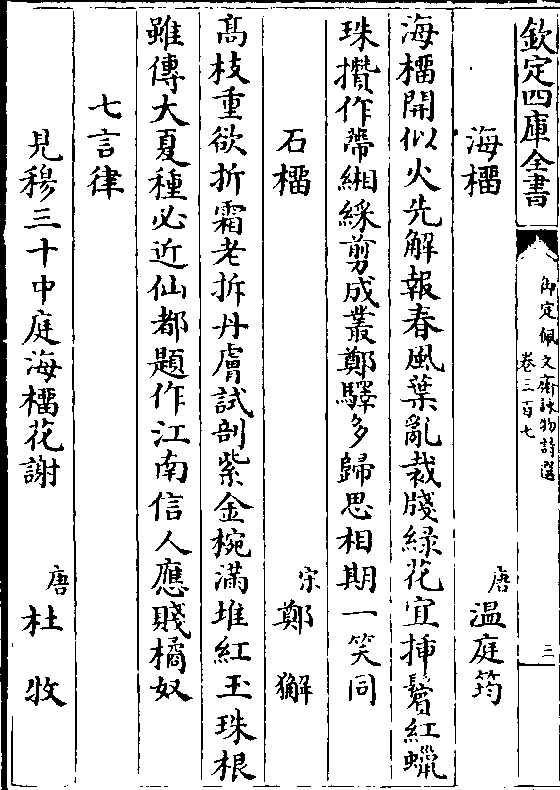 欽定四庫全書
御定佩文齋詠物詩選
卷三百七
三
海榴
唐
温庭筠
海榴開似火先解報春風葉亂裁牋緑花宜插鬢紅蠟
珠攢作蔕緗綵剪成叢鄭驛多歸思相期一笑同
石榴
宋
鄭獬
髙枝重欲折霜老拆丹膚試剖紫金椀滿堆紅玉珠根
雖傳大夏種必近仙都題作江南信人應賤橘奴
七言律
見穆三十中庭海榴花謝
唐
杜牧